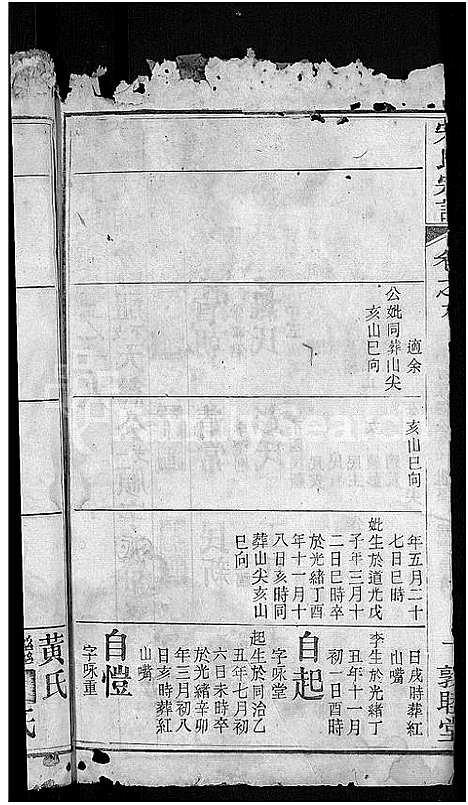 宗譜
卷之
敦睦堂
適余
公妣同葬山尖
亥山巳向
亥山巳向
年五月二十
七日巳時
妣生於道光戊
子年三月十
二日巳時卒
於光緒丁酉
年十一月十
八日亥時同
葬山尖亥山
巳向
日戌時葬紅
山嘴
李生於光緒丁
丑年十一月
初一日酉時
自起
字咏堂
起生於同治乙
丑年七月初
六日未時卒
於光緒辛卯
年三月初八
日亥時葬紅
山嘴
自愷
字咏重
黃氏
氏